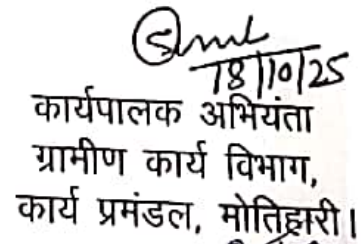 18/10/25
कार्यपालक अभियंता
ग्रामीण कार्य विभाग,
कार्य प्रमंडल, मोतिहारी।